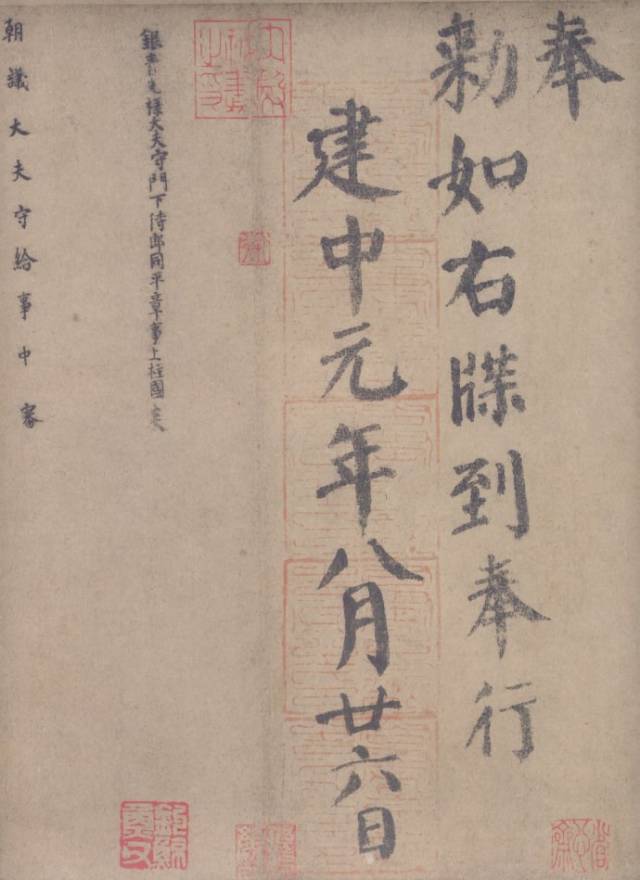 奉
勑如右牒到奉行
建中元年八月廿六日
銀青光祿大夫守門下侍郎同平章事上柱國炎
朝議大夫守給事中審